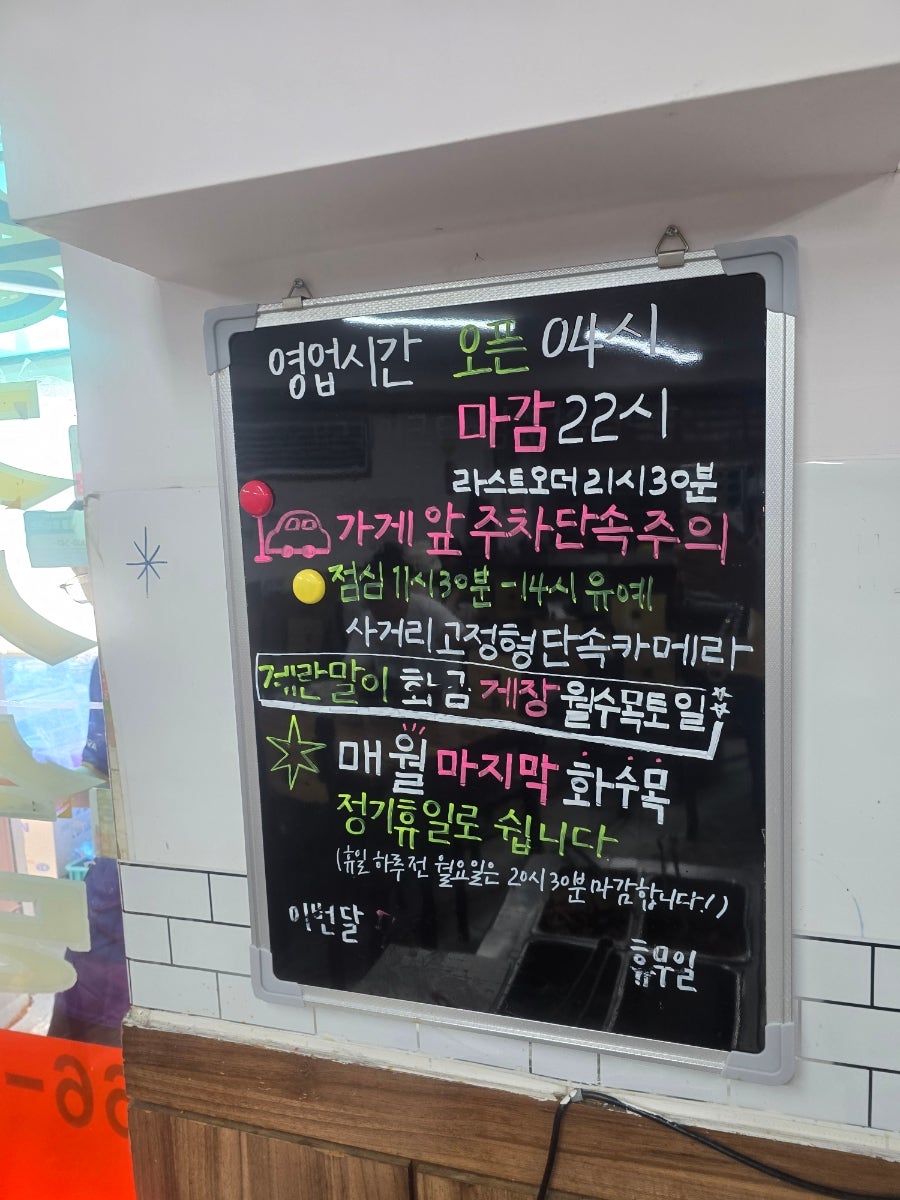 영업시간 오픈 04시
마감 22시
라스트오더 21시30분
가게 앞 주차단속주의
점심 11시30분-14시 유예
사거리 고정형단속카메라
계란말이 화금 게장 월수목토일
매월 마지막 화수목
정기휴일로 쉽니다
(휴일 하루전 월요일은 20시30분 마감합니다!)
이번달
휴무일